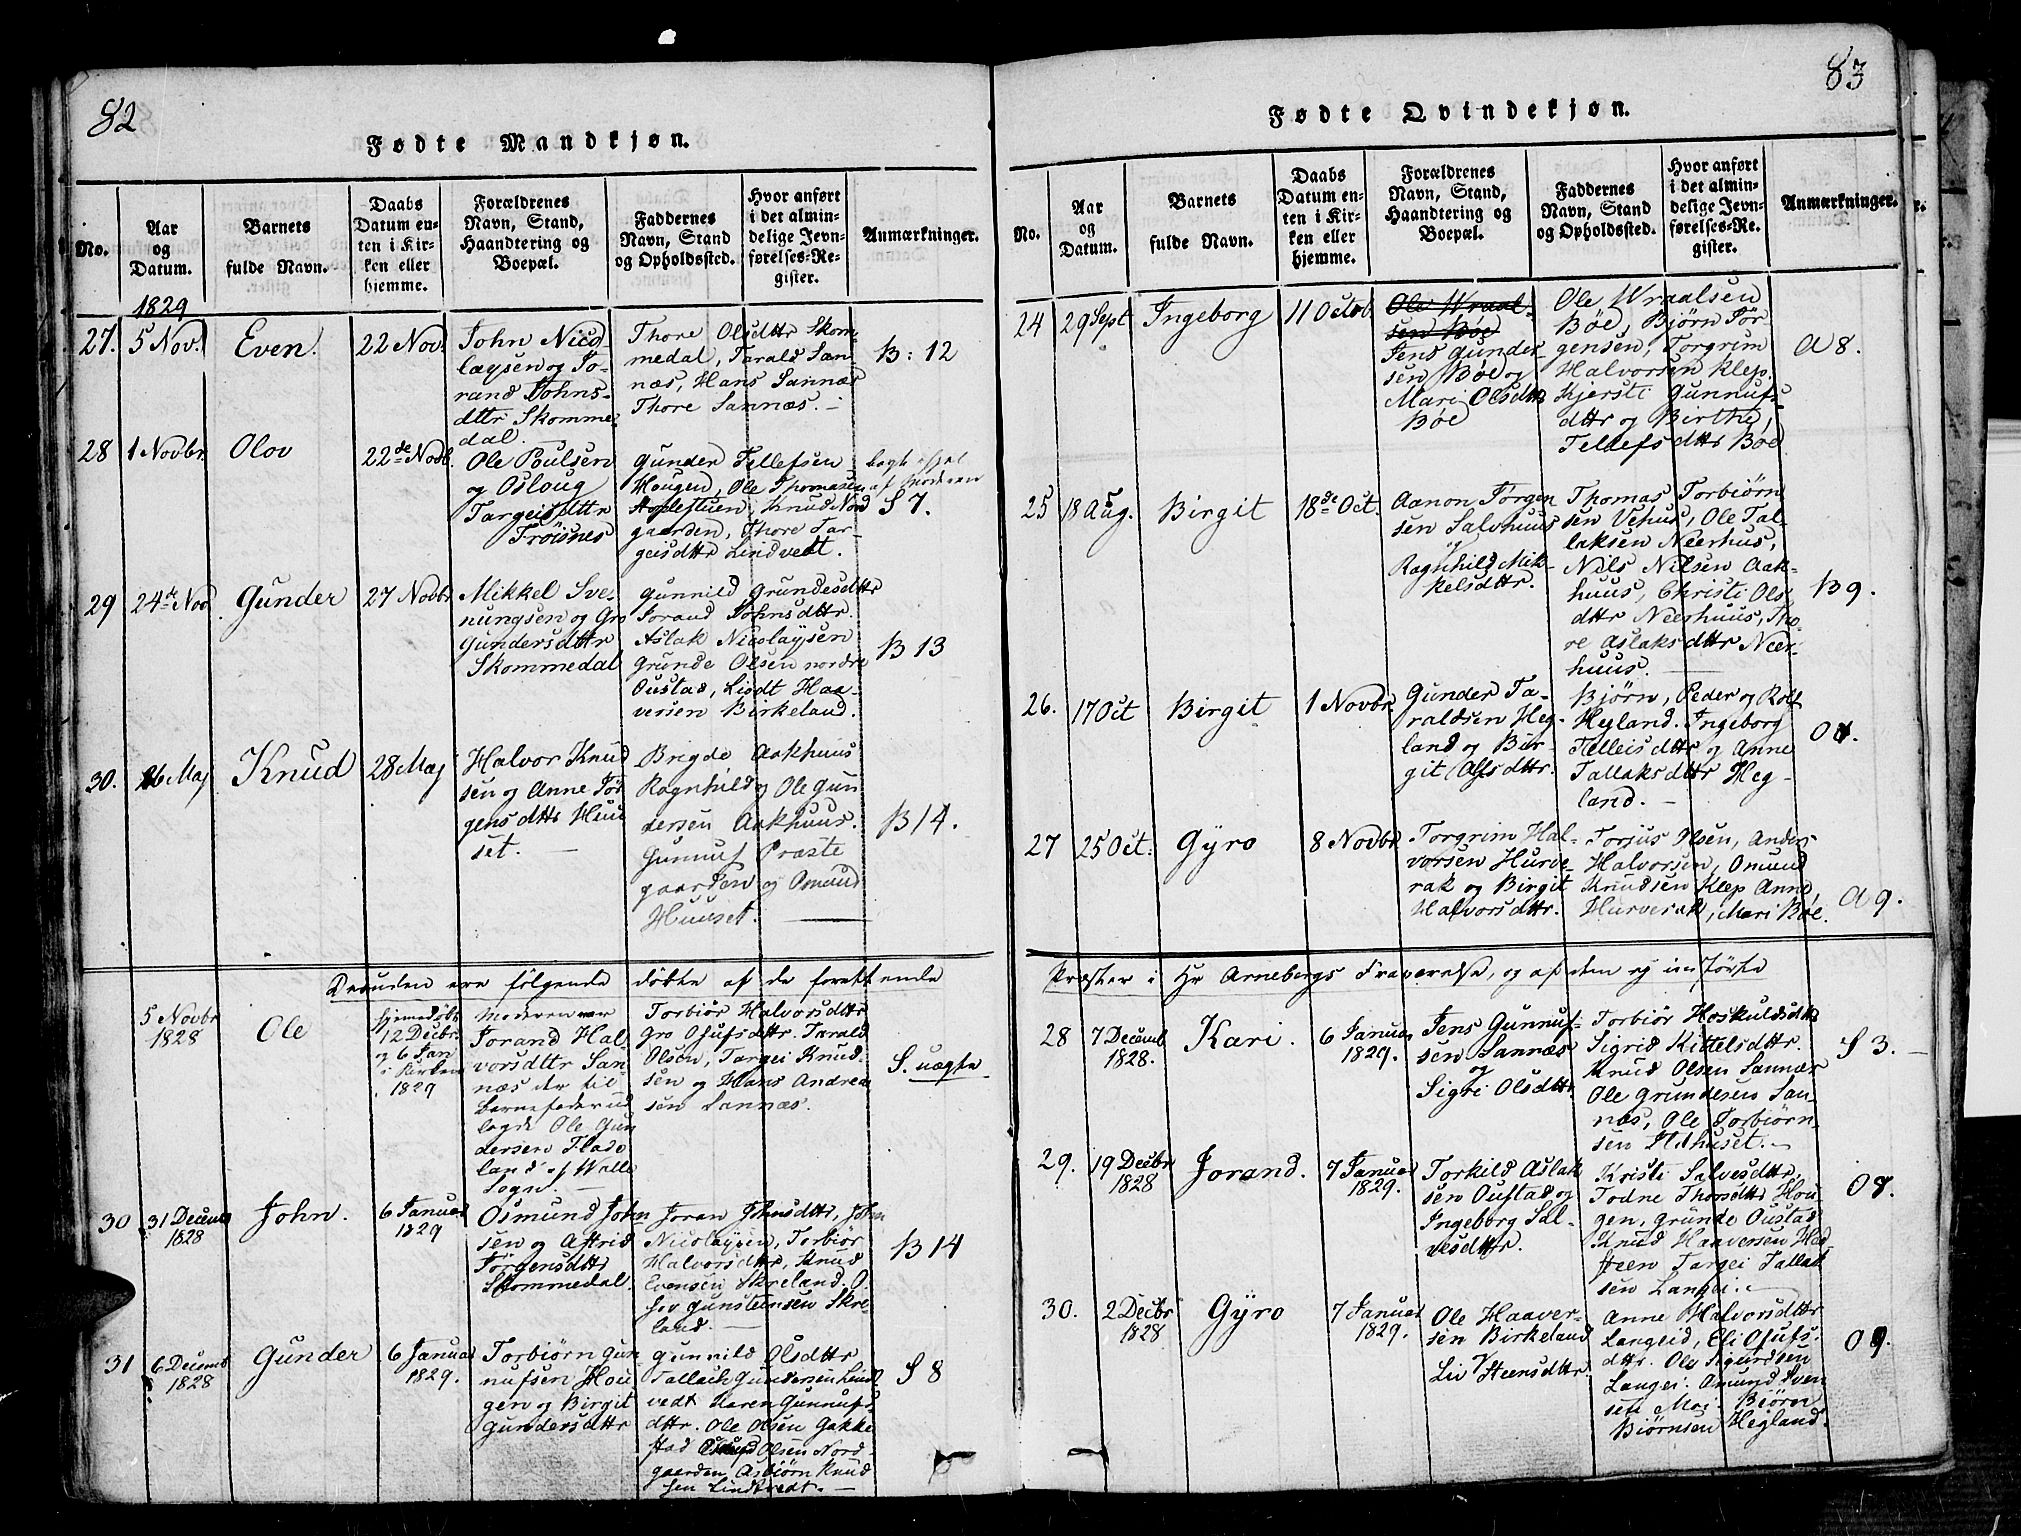 82
Fødte Mandkjøn.
No.
Aar
og
Datum.
Barnets
fulde Navn.
Daabs
Datum en-
ten i Kir-
ken eller
hjemme.
Forældrenes
Navn, Stand,
Haandtering og
Boepæl.
Faddernes
Navn, Stand
og Opholdssted.
Hvor anført
i det almin-
delige Jevn-
førelses-Re-
gister.
Anmærkninger.
1829
27.
5 Nov.
Even.
22 Nov.
John Nico-
laysen og Jo-
rand Johns-
dttr Skomme-
dal.
Thore Olsdttr Skom-
medal, Tarald San-
næs, Hans Sannæs
Thore Sannæs. -
B: 12
28
1 Novbr.
Olov
22de Novb.
Ole Poulsen
og Osloug
Targeisdttr
Frøisnes
Gunder Tellefsen
Hougen, Ole Thomasen
Knud Nord
gaarden, Thore Tar-
geisdttr Lindvedt.
af Moderen
S 7.
29
24de Nov.
Gunder
27 Novbr
Mikkel Sve-
nungsen og Gro
Gundersdttr
Skommedal
Gunnild Grundesdttr
Jorand Johnsdttr.
Aslak Nicolaysen
Grunde Olsen nordre
Oustad, Liødt Haa-
versen Birkeland.
B 13
30.
26 Maj
Knud
28 Maj
Halvor Knud
sen og Anne Jør
gensdttr Huu
set. -
Brigde Aakhuus
Ragnhild og Ole Gun
dersen Aakhuus.
Gunnuf Præste
gaarden og Omund
Huuset.
B 14.
Desuden ere følgende døbte af de forettende
5 Novbr
1828
Ole
hjemmedøbt
12 Decbr.
og 6 Jan
i Kirken
1829
Moderen var
Jorand Hal
vorsdttr San-
næs der til
Barnefader ud
lagde Ole Gun
dersen Flade
land af Walle
Sogn. -
Torbiør Halvorsdttr
Gro Osufsdttr. Tarald
Olsen, Targei Knud
sen og Hans Andrea
sen Sannæs.
S. uægte
30
31 Decemb
1828
John.
6 Januar
1829
Osmund John
sen og Astrid
Jørgensdttr
Skommedal.
Joran Johnsdttr, John
Nicolaysen, Torbiør
Halvorsdttr, Knud
Evensen Skreland. O
Gunsteinsen Skre
land. -
B 14
31
6 Decemb
1828
Gunder
6 Januar
1829.
Torbiørn Gun
nufsen Hou
gen og Birgit
Gundersdttr
Gunnild Olsdttr
Tallach Gundersen Lind
vedt Karen Gunnufs
dttr. Ole Olsen Gakke
stad Olsen Nord-
gaarden Asbiørn Knud
sen Lindtvedt. -
S 8
83
Fødte Qvindekjøn.
No.
Aar
og
Datum.
Barnets
fulde Navn.
Daabs
Datum en-
ten i Kir-
ken eller
hjemme.
Forældrenes
Navn, Stand,
Haandtering og
Boepæl.
Faddernes
Navn, Stand
og Opholdssted.
Hvor anført
i det almin-
delige Jevn-
førelses-Re-
gister.
Anmærkninger.
24
29 Sept
Ingeborg
11 Octob
Ole Wraal-
sen Boe
Jens Gunder-
sen Bøe og
Mari Olsdttr
Bøe
Ole Wraalsen
Bøe, Bjørn Jør-
gensen, Torgrim
Halvorsen Klep.
Kjersti Gunnufs-
dttr og Birthe
Tellefsdttr Bøe
A 8.
25
18 Aug.
Birgit
18de Oct.
Aanon Jørgen
sen Salvhuus
og
Ragnhild Mik-
kelsdttr.
Thomas Torbiørn
sen Vehus, Ole Tal-
laksen Neerhus,
Nils Nilsen Aak-
huus, Christi Ols
dttr Neerhuus, Tho-
re Aslaksdttr Neer-
huus.
B 9.
26.
17 Oct
Birgit
1 Novbr
Gunder Ta-
raldsen Heg-
land og Bir-
git Olsdttr.
Bjørn, Peder og Rolf
Hegland. Ingeborg
Telleisdttr og Anne
Tallaksdttr Heg-
land. -
27
25 Oct.
Gyro
8 Novbr
Torgrim Hal-
vorsen Hurve-
rak og Birgit
Halvorsdttr.
Torjus Olsen, Anders
Halvorsen, Omund
Knudsen Klep Anne
Hurverak, Mari Bøe.
A 9.
Præster i Hr Arnebergs Fraværelse, og af dem ej indførte
28
7 Decemb
1828.
Kari.
6 Januar
1829.
Jens Gunnuf-
sen Sannæs
og
Sigri Olsdttr.
Torbiør Hoskuldsdttr
Sigrid Kittelsdttr.
Knud Olsen Sannæs
Ole Grundesen San-
næs, Ole Torbiørn
sen Ildhuset. -
S 3. -
29.
19 Decbr
1828
Jorand.
7 Januar
1829.
Torkild Aslak
sen Oustad og
Ingeborg Sal-
vesdttr.
Kristi Salvesdttr,
Todne Thorsdttr Hou-
gen, Grunde Oustad
Knud Haaversen
Targei Tallak
sen Langei. -
30.
2 Decbr
1828
Gyro
7 Januar
1829.
Ole Haaver-
sen Birkeland
Liv Steensdttr.
Anne Halvorsdttr
Langeid, Eli Osufs-
dttr. Ole Sigurdsen
Langei. Amund Sven
sen Moi. Biørn
Biørnsen Hegland.
O 9.